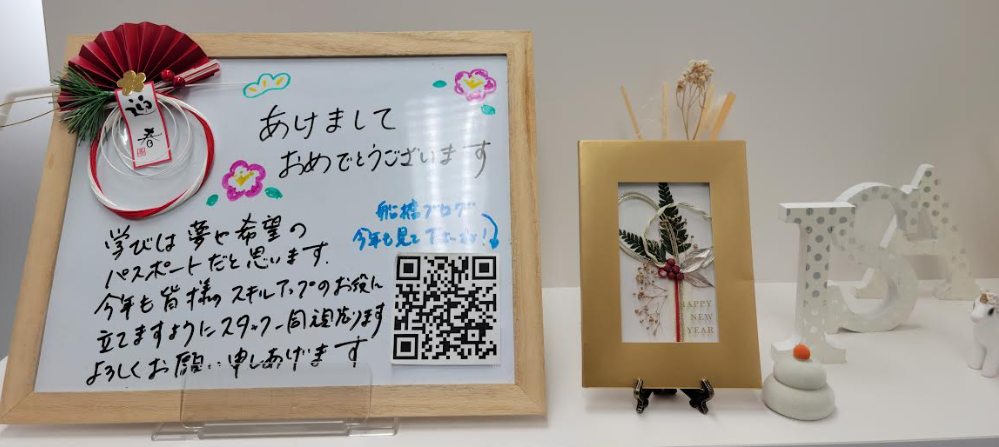 迎春
あけまして
おめでとうございます
船橋ブログ
今年も見て下さいネ!
学びは夢や希望の
パスポートだと思います。
今年も皆様のスキルアップのお役に
立てますようにスタッフ一同頑張ります
よろしくお願い申しあげます
HAPPY
NEW
YEAR
ISA